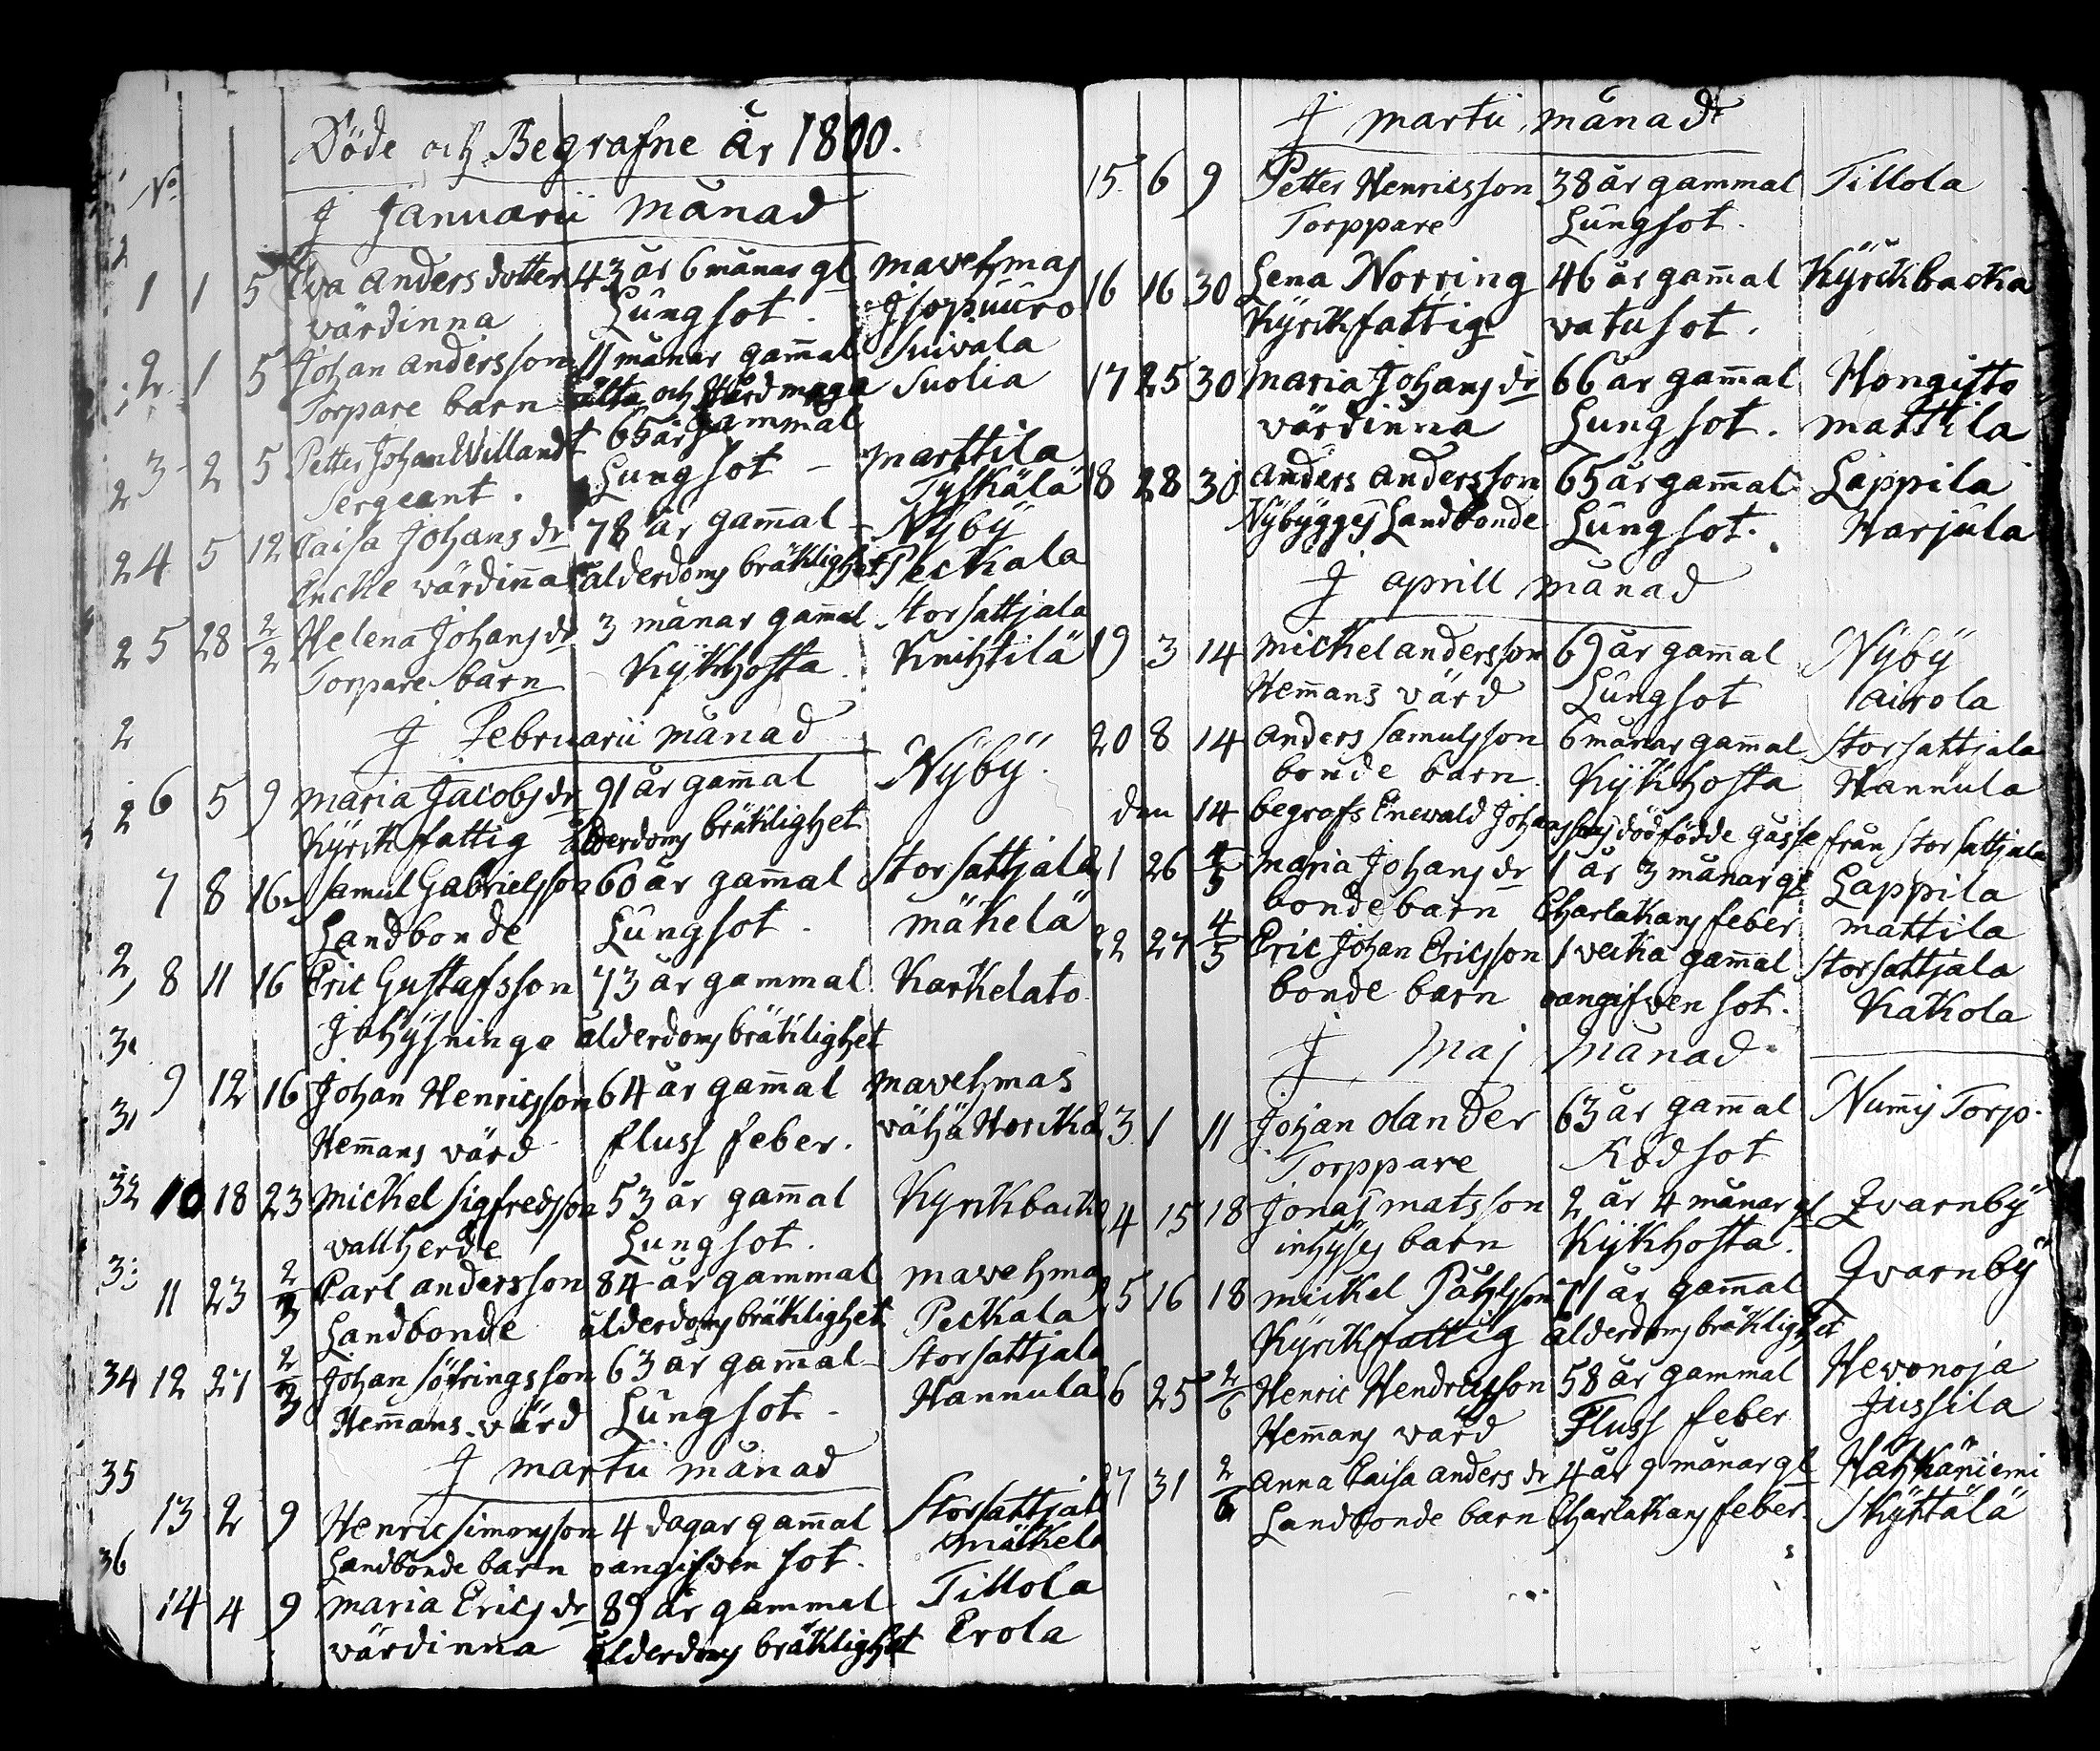 Döde och Begrafne år 1800.
No
J Januarii månad
1 1 5 Eva Andersdotter 43 år 6 månar gl mavehmas
värdinna Lungsot. Jsopuuro
2 1 5 Johan andersson 11 månar gammal Suivala
Torpare barn älta och Hård maga Suolia
3 2 5 Petter Johan Willandt 65 år gammal
Sergeant. Lungsot - marttila
Tyskälä
4 5 12 Caisa Johans dr 78 år gammal - Nÿbÿ
Encke värdinna ålderdoms bräklighet Peckala
5 28 2/2 Helena Johans dr 3 månar gammal Storsattjala
Torpare barn Kÿkhosta Knihtilä
J Februarii månad
6 5 9 maria Jacobs dr 91 år gammal Nÿbÿ.
Kÿrkfattig ålderdoms bräklighet
7 8 16 Samul Gabrielsson 60 år gammal Storsattjala
Landbonde Lungsot. mäkelä
8 11 16 Eric Gustafsson 73 år gammal Karkelato
Jnhÿsninge ålderdoms bräklighet
9 12 16 Johan Henricsson 64 år gammal mavehmas
Hemmans värd fluss feber. vähä Horcka
10 18 23 mickel sigfredsson 53 år gammal Kyrkbacka
vallherde Lungsot.
11 23 2/3 Carl andersson 84 år gammal mavehmas
Landbonde ålderdoms bräklighet Peckala
12 27 2/3 Johan söfringsson 63 år gammal Storsattjala
Hemmans värd Lungsot. Hannula
J martii månad
13 2 9 Henric simonsson 4 dagar gammal Storsattjala
Landbonde barn oangifven sot. mäkelä
14 4 9 maria Erics dr 89 år gammal Tillola
värdinna ålderdoms bräklighet Erola
J martii månad
15 6 9 Petter Henricsson 38 år gammal Tillola
Torppare Lungsot.
16 16 30 Lena Norring 46 år gammal Kÿrckbacka
Kÿrckfattig vatusot.
17 25 30 maria Johans dr 66 år gammal Hongisto
värdinna Lungsot. mattila
18 28 30 anders andersson 65 år gammal Lappila
Nÿbÿgges Landbonde Lungsot. Harjula
J aprill månad
19 3 14 mickel andersson 69 år gammal Nÿbÿ
Hemmans värd Lungsot Cairola
20 8 14 anders samulsson 6 månar gammal Storsattjala
bonde barn Kÿkhosta Hannula
den 14 begrofs Enevald Johanssons dödfödde gasse från Storsattjala
21 26 4/5 maria Johans dr 1 år 3 månar gl Lappila
bonde barn Charlakans feber mattila
22 27 4/5 Eric Johan Ericsson 1 vecka gammal Storsattjala
bonde barn oangifven sot. Kakola
J maj månad
23 1 11 Johan olander 63 år gammal Nums Torp.
Torppare Rödsot
24 15 18 Jonas matsson 2 år 4 månar gl Qvarnbÿ
inhÿses barn Kÿkhosta.
25 16 18 mickel Påhlsson 71 år gammal Qvarnbÿ
Kÿrkfattig ålderdoms bräklighet
26 25 2/6 Henric Hendricsson 58 år gammal Hevonoja
Hemmans värd Fluss feber Jussila
27 31 2/6 anna Caisa anders dr 4 år 9 månar gl Hähkäniemi
Landbonde barn Charlakans feber. Skÿttälä